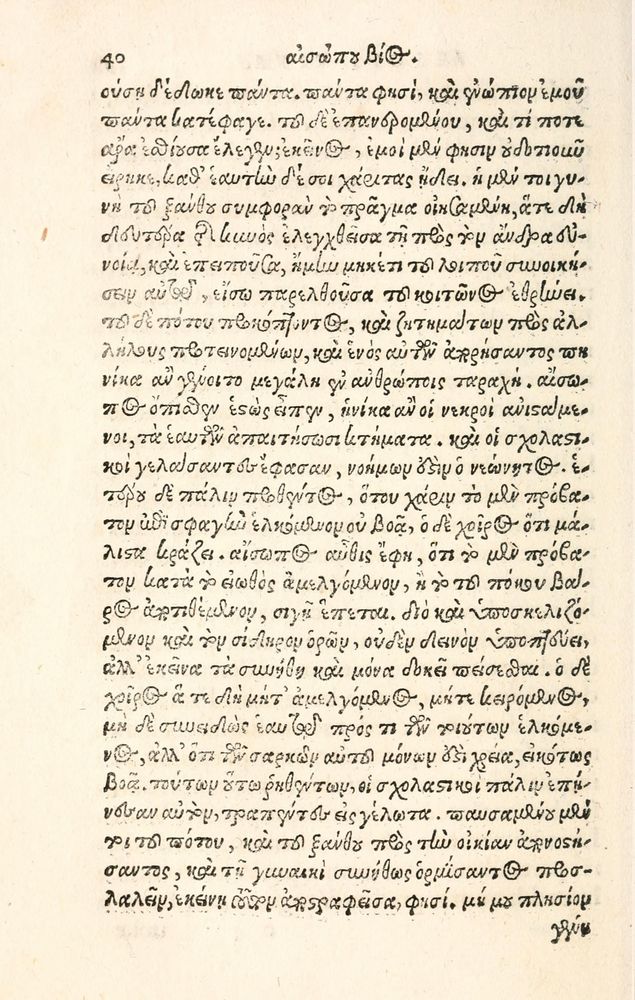 40 αἰσώπου βίος.
ούσῃ δέδωκε πάντα. πάντα φησί, καὶ ἐνώπιον ἐμοῦ
πάντα κατέφαγε. τοῦ δὲ ἐπανερομένου, καὶ τί ποτε
ἄρα ἐσθίουσα ἔλεγεν; ἐκεῖνος, ἐμοὶ μέν φησιν οὐδοτιοῦν
εἴρηκε, καθ' ἑαυτὴν δέ σοι χάριτας ᾔδει. ἡ μέν τοι γυ-
νὴ τοῦ ξάνθου συμφορὰν τὸ πρᾶγμα οἰησαμένη, ἅτε δὴ
δευτέρα τοῦ κυνὸς ἐλεγχθεῖσα τῇ πρὸς τὸν ἄνδρα εὐ-
νοίᾳ, καὶ ἐπειποῦσα, ἦ μὴν μηκέτι τοῦ λοιποῦ συνοικη-
σειν αὐτῷ, εἴσω παρελθοῦσα τοῦ κοιτῶνος ἐθρήνει.
τοῦ δὲ πότου προκόπτοντος, καὶ ζητημάτων πρὸς ἀλ-
λήλους προτεινομένων, καὶ ἑνὸς αὐτῶν ἀπορήσαντος πη
νίκα ἂν γένοιτο μεγάλη ἐν ἀνθρώποις ταραχή. αἴσω-
πος ὄπισθεν ἑστὼς εἶπεν, ἡνίκα ἂν οἱ νεκροὶ ἀνιστάμε-
νοι, τὰ ἑαυτῶν ἀπαιτήσωσι κτήματα. καὶ οἱ σχολαστι-
κοὶ γελάσαντες ἔφασαν, νοήμων ἐστὶν ὁ νεώνητος. ἑ-
τέρου δὲ πάλιν προθέντος, ὅτου χάριν τὸ μὲν πρόβα-
τον ἐπὶ σφαγὴν ἑλκόμενον οὐ βοᾷ, ὁ δὲ χοῖρος ὅτι μά-
λιστα κράζει. αἴσωπος αὖθις ἔφη, ὅτι τὸ μὲν πρόβα-
τον κατὰ τὸ εἰωθὸς ἀμελγόμενον, ἢ τὸ τοῦ πόκου βά-
ρος ἀποτιθέμενον, σιγῇ ἕπεται. διὸ καὶ ὑποσκελιζό-
μενον καὶ τὸν σίδηρον ὁρῶν, οὐδὲν δεινὸν ὑποπτεύει,
ἀλλ' ἐκεῖνα τὰ συνήθη καὶ μόνα δοκεῖ πείσεσθαι. ὁ δὲ
χοῖρος ἅ τε δὴ μήτ' ἀμελγόμενος, μήτε κειρόμενος,
μὴ δὲ συνειδὼς ἑαυτῷ πρός τι τῶν τοιούτων ἑλκόμε-
νος, ἀλλ' ὅτι τῶν σαρκῶν αὐτοῦ μόνων ἐστὶ χρεία, εἰκότως
βοᾷ. τούτων οὕτω ῥηθέντων, οἱ σχολαστικοὶ πάλιν ἐπῄ-
νεσαν αὐτόν, τραπέντες εἰς γέλωτα. παυσαμένου μέν
τοι τοῦ πότου, καὶ τοῦ ξάνθου πρὸς τὴν οἰκίαν ἀπονοστή-
σαντος, καὶ τῇ γυναικὶ συνήθως ὁρμίσαντος προσ-
λαλεῖν, ἐκείνη αὐτὸν ἀποστραφεῖσα, φησί. μή μου πλησίον
γένῃ